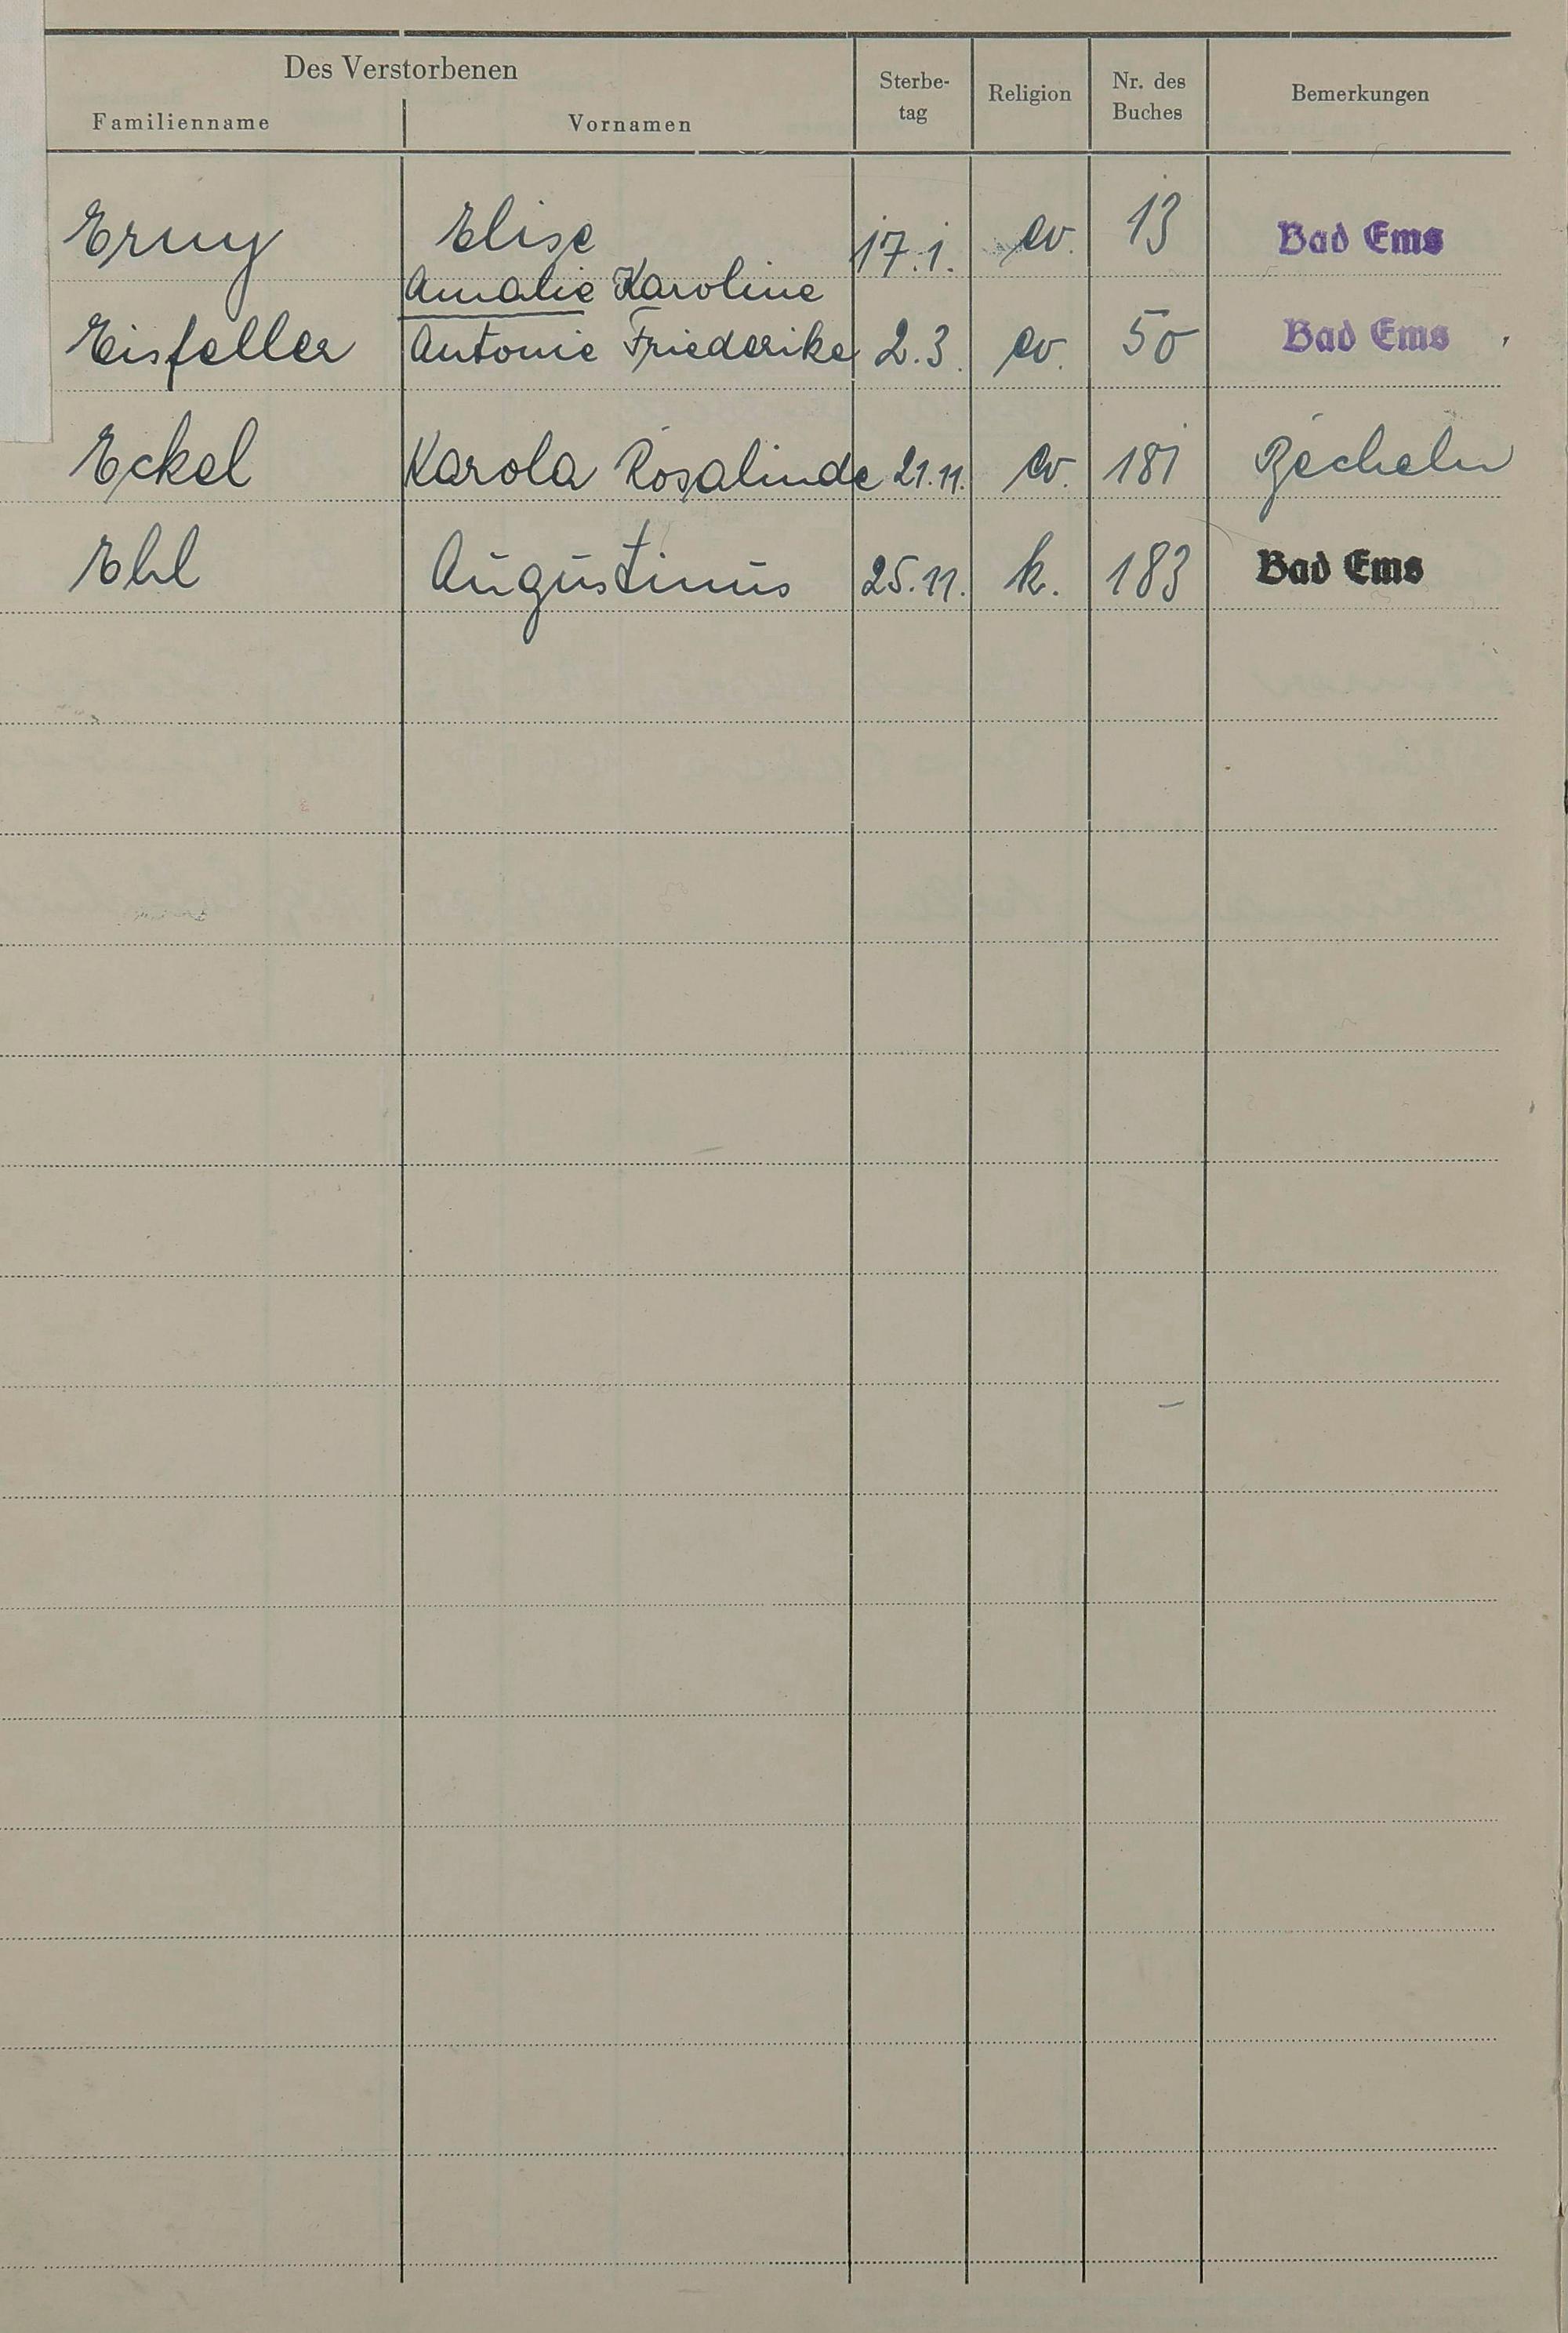 Des Verstorbenen
Familienname Vornamen Sterbe-tag Religion Nr. des Buches Bemerkungen
Erny Elise 17.1. ev. 13 Bad Ems
Amalie Karoline
Eisfeller Antonie Friederike 2.3. ev. 50 Bad Ems
Eckel Karola Rosalinde 21.11. ev. 181 Becheln
Ehl Augustinus 25.11. k. 183 Bad Ems